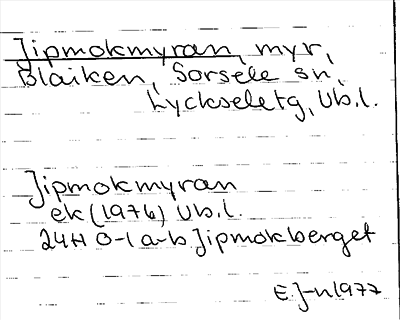 Jipmokmyran, myr,
Blaiken, Sorsele sn,
Lyckseletg, Vb.l.
Jipmokmyran
ek (1976) Vb.l.
24H 0-1 a-b. Jipmokberget
E.J-n 1977